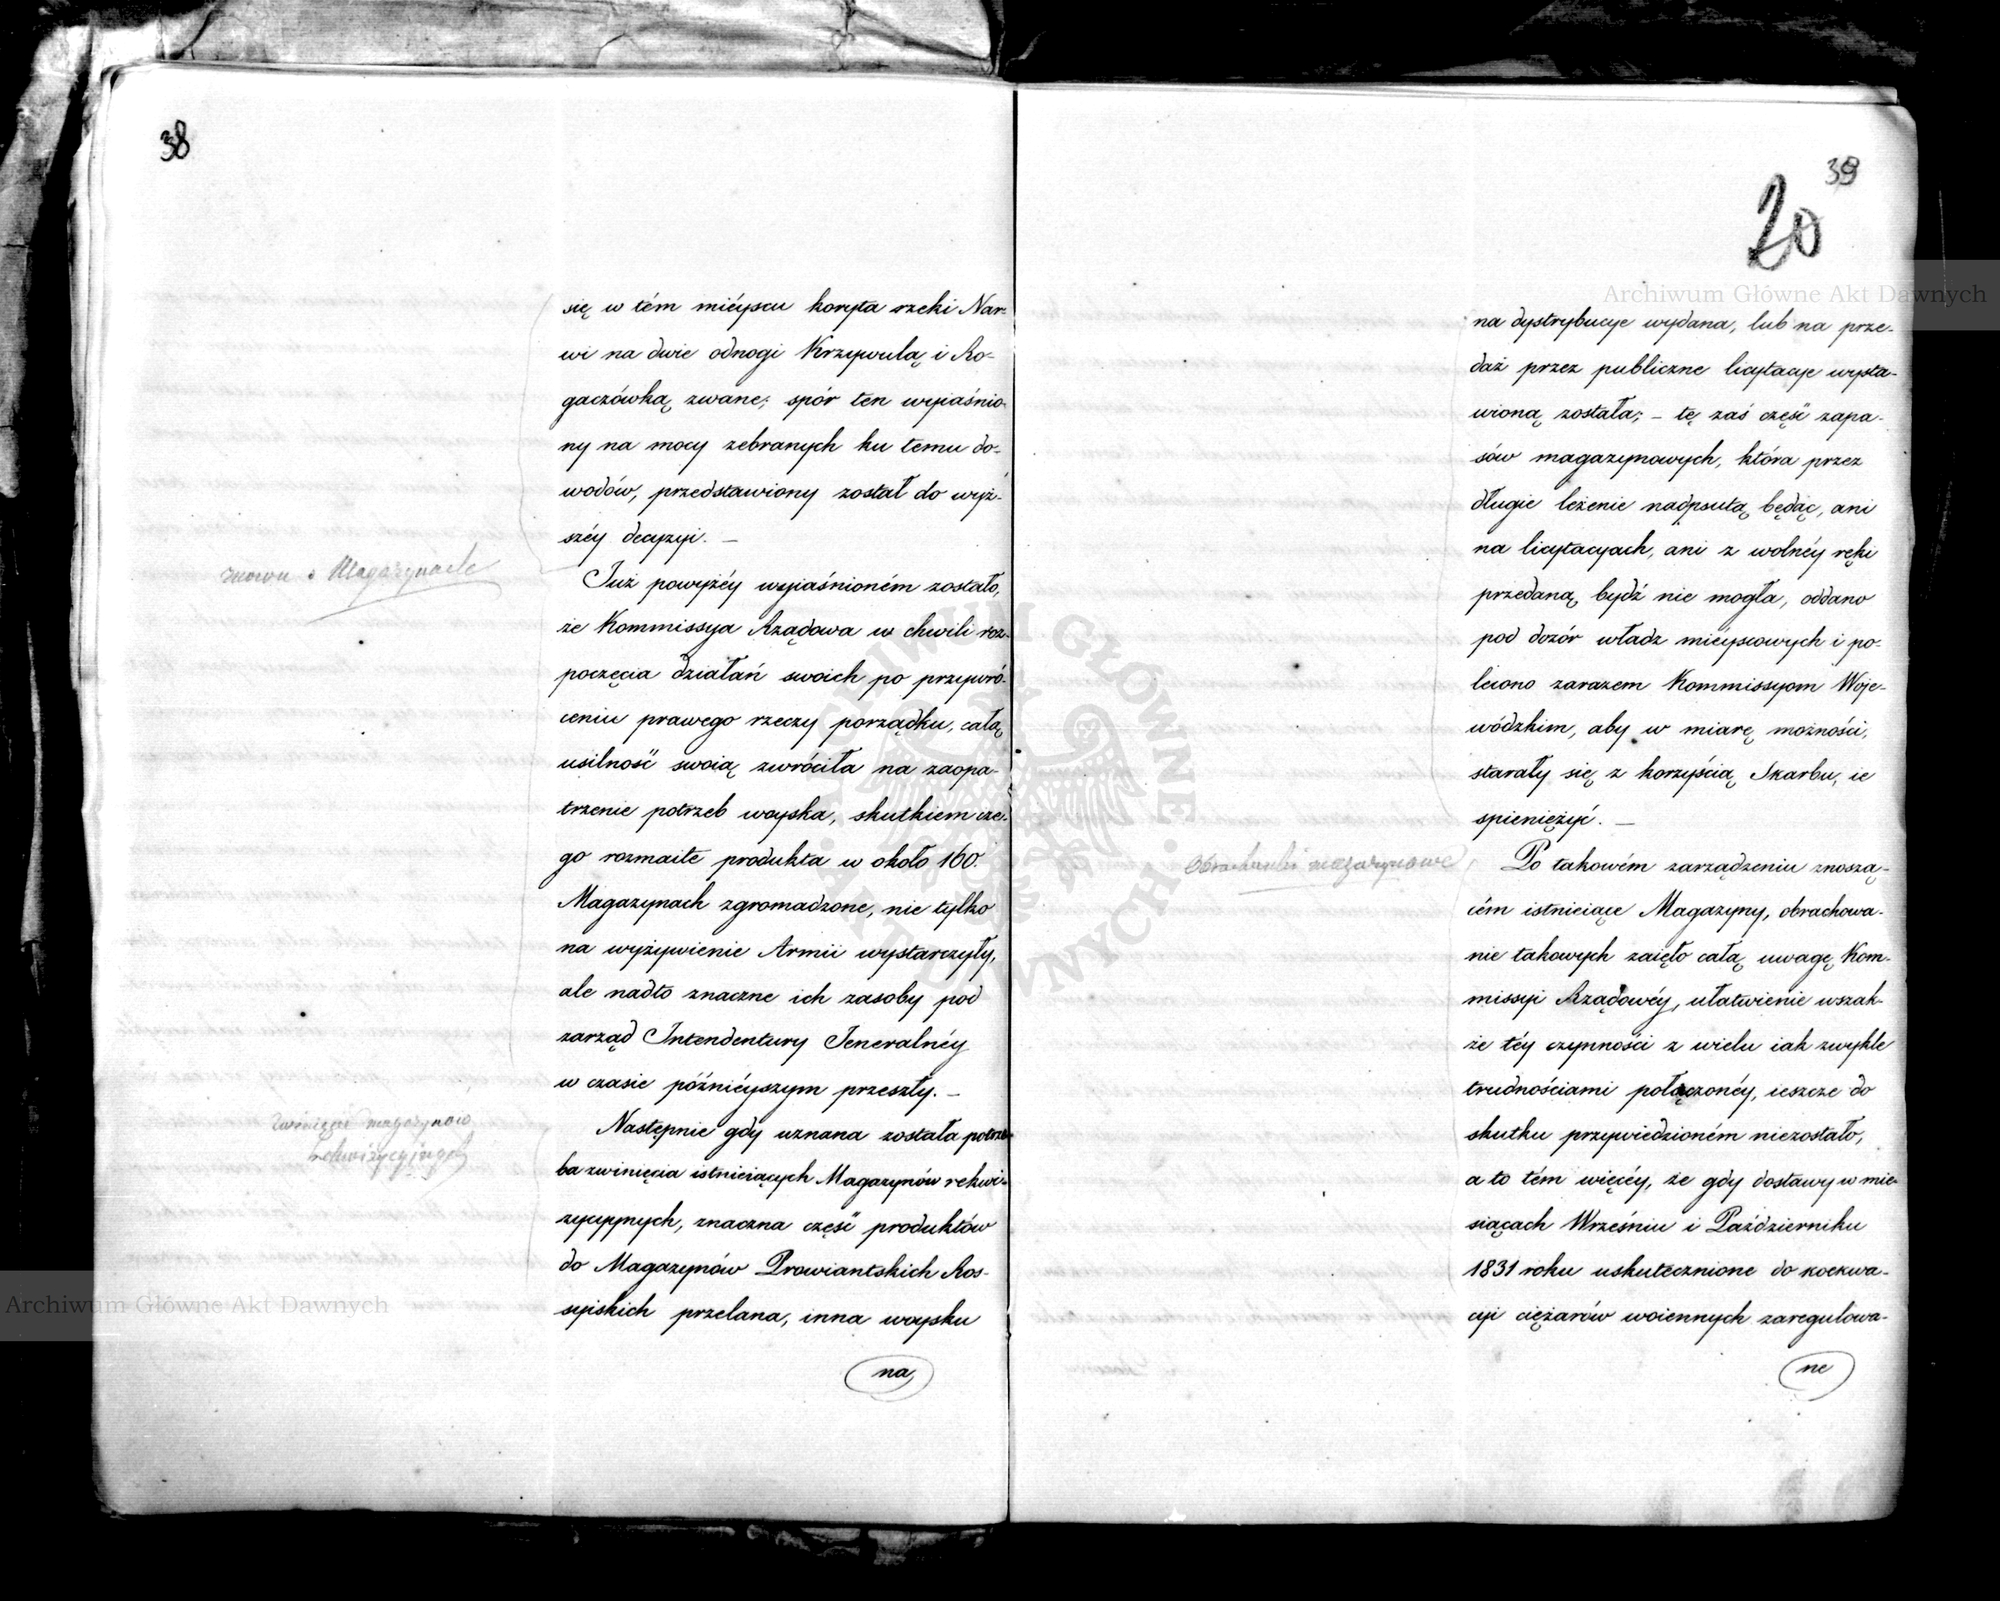 38
się w tém mieyscu koryta rzeki Nar-
wi na dwie odnogi Krzywulą i Ro-
gaczówką zwane; spór ten wyiaśnio-
ny na mocy zebranych ku temu do-
wodów, przedstawiony został do wyż-
széy decyzyi. —
znowu o Magazynach
Już powyżéy wyiaśnioném zostało,
że Kommissya Rządowa w chwili roz-
poczęcia działań swoich po przywró-
ceniu prawego rzeczy porządku, całą
usilność swoią zwróciła na zaopa-
trzenie potrzeb woyska, skutkiem cze-
go rozmaite produkta w około 160.
Magazynach zgromadzone, nie tylko
na wyżywienie Armii wystarczyły,
ale nadto znaczne ich zasoby pod
zarząd Intendentury Jeneralnéy
w czasie późnieyszym przeszły. —
zwinięcie magazynów
rekwizycyjnych
Następnie gdy uznana została potrze-
ba zwinięcia istnieiących Magazynów rekwi-
zycyynych, znaczna część produktów
do Magazynów Prowiantskich Ros-
syiskich przelana, inna woysku
na
39
20
na dystrybucye wydana, lub na prze-
daż przez publiczne licytacye wysta-
wioną została; — tę zaś część zapa-
sów magazynowych, która przez
długie leżenie nadpsutą będąc, ani
na licytacyach, ani z wolnéy ręki
przedaną bydź nie mogła, oddano
pod dozór władz mieyscowych i po-
lecono zarazem Kommissyom Woje-
wódzkim, aby w miarę możności,
starały się z korzyścią Skarbu, ie
spieniężyć. —
Obrachunki magazynowe
Po takowém zarządzeniu znoszą-
cém istnieiące Magazyny, obrachowa-
nie takowych zaięło całą uwagę Kom-
missyi Rządowéy, ułatwienie wszak-
że téy czynności z wielu iak zwykle
trudnościami połączonéy, ieszcze do
skutku przywiedzioném niezostało,
a to tém więcéy, że gdy dostawy w mie-
siącach Wrześniu i Październiku
1831 roku uskutecznione do koekwa-
cyi ciężarów woiennych zaregulowa-
ne
Archiwum Główne Akt Dawnych
Archiwum Główne Akt Dawnych
ARCHIWUM GŁÓWNE AKT DAWNYCH